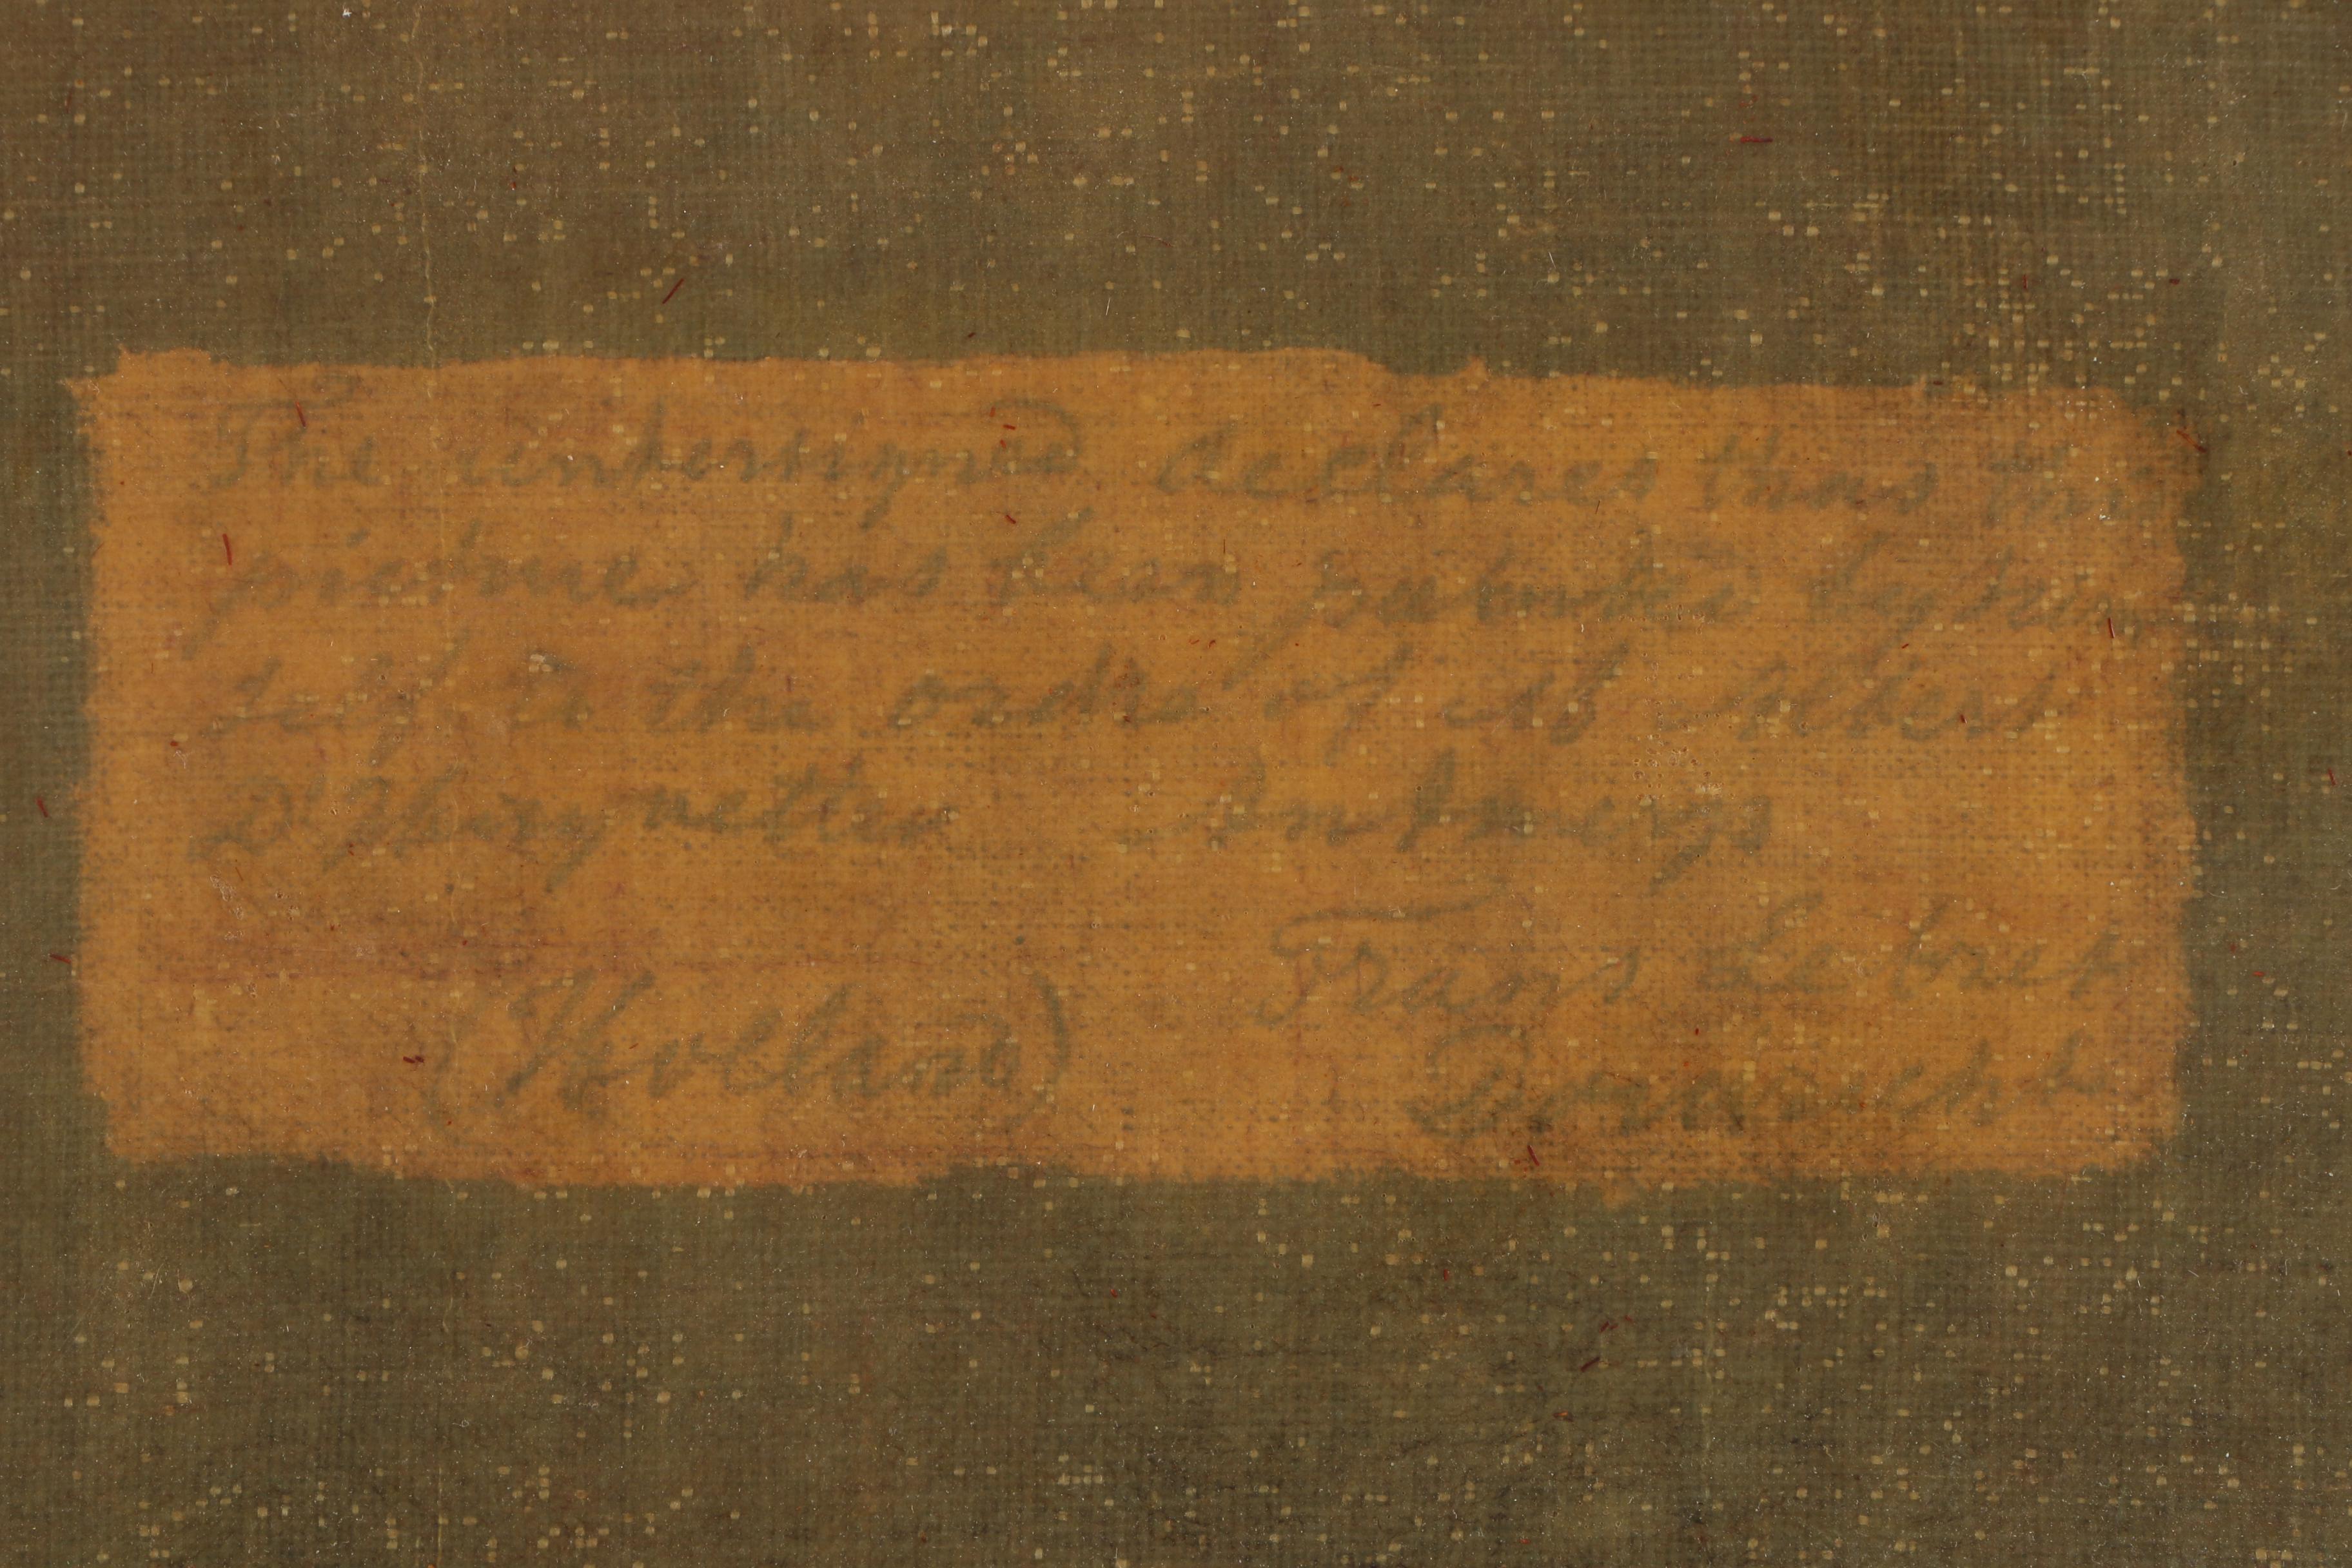 The undersigned declares that this
picture has been painted by him
self to the order of
D'Huyvetter Antwerp
Frans Lebret
(Holland) Dordrecht